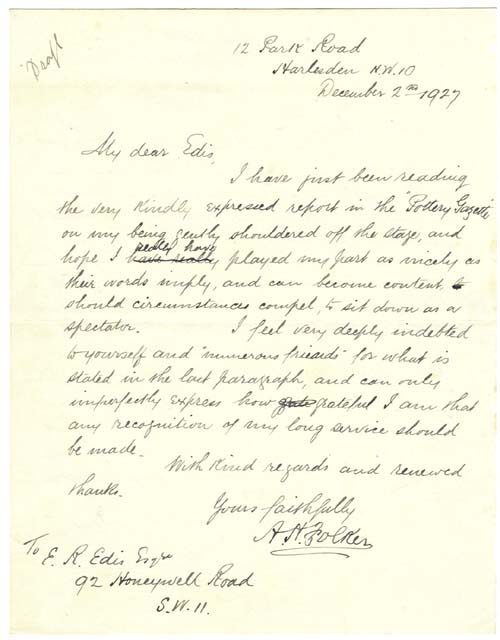 Draft
12 Park Road
Harlesden N.W.10
December 2nd 1927
My dear Edis,
I have just been reading
the very kindly expressed report in the "Pottery Gazette"
on my being gently shouldered off the stage, and
really have
hope I have really played my part as nicely as
their words imply, and can become content to
should circumstances compel, to sit down as a
spectator. I feel very deeply indebted
to yourself and "numerous friends" for what is
stated in the last paragraph, and can only
imperfectly express how grateful I am that
any recognition of my long service should
be made.
With kind regards and renewed
thanks.
Yours faithfully
A. H. Folker
To E. R. Edis Esqre
92 Honeywell Road
S.W.11.